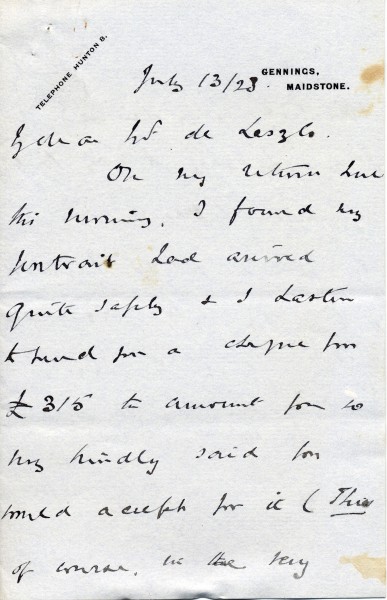 TELEPHONE HUNTON 8.
GENNINGS,
MAIDSTONE.
July 13/23.
My dear Mr de Laszlo.
On my return here
this morning, I found my
portrait had arrived
quite safely & I hasten
to send you a cheque for
£315 the amount you so
very kindly said you
would accept for it (This
of course, is the very